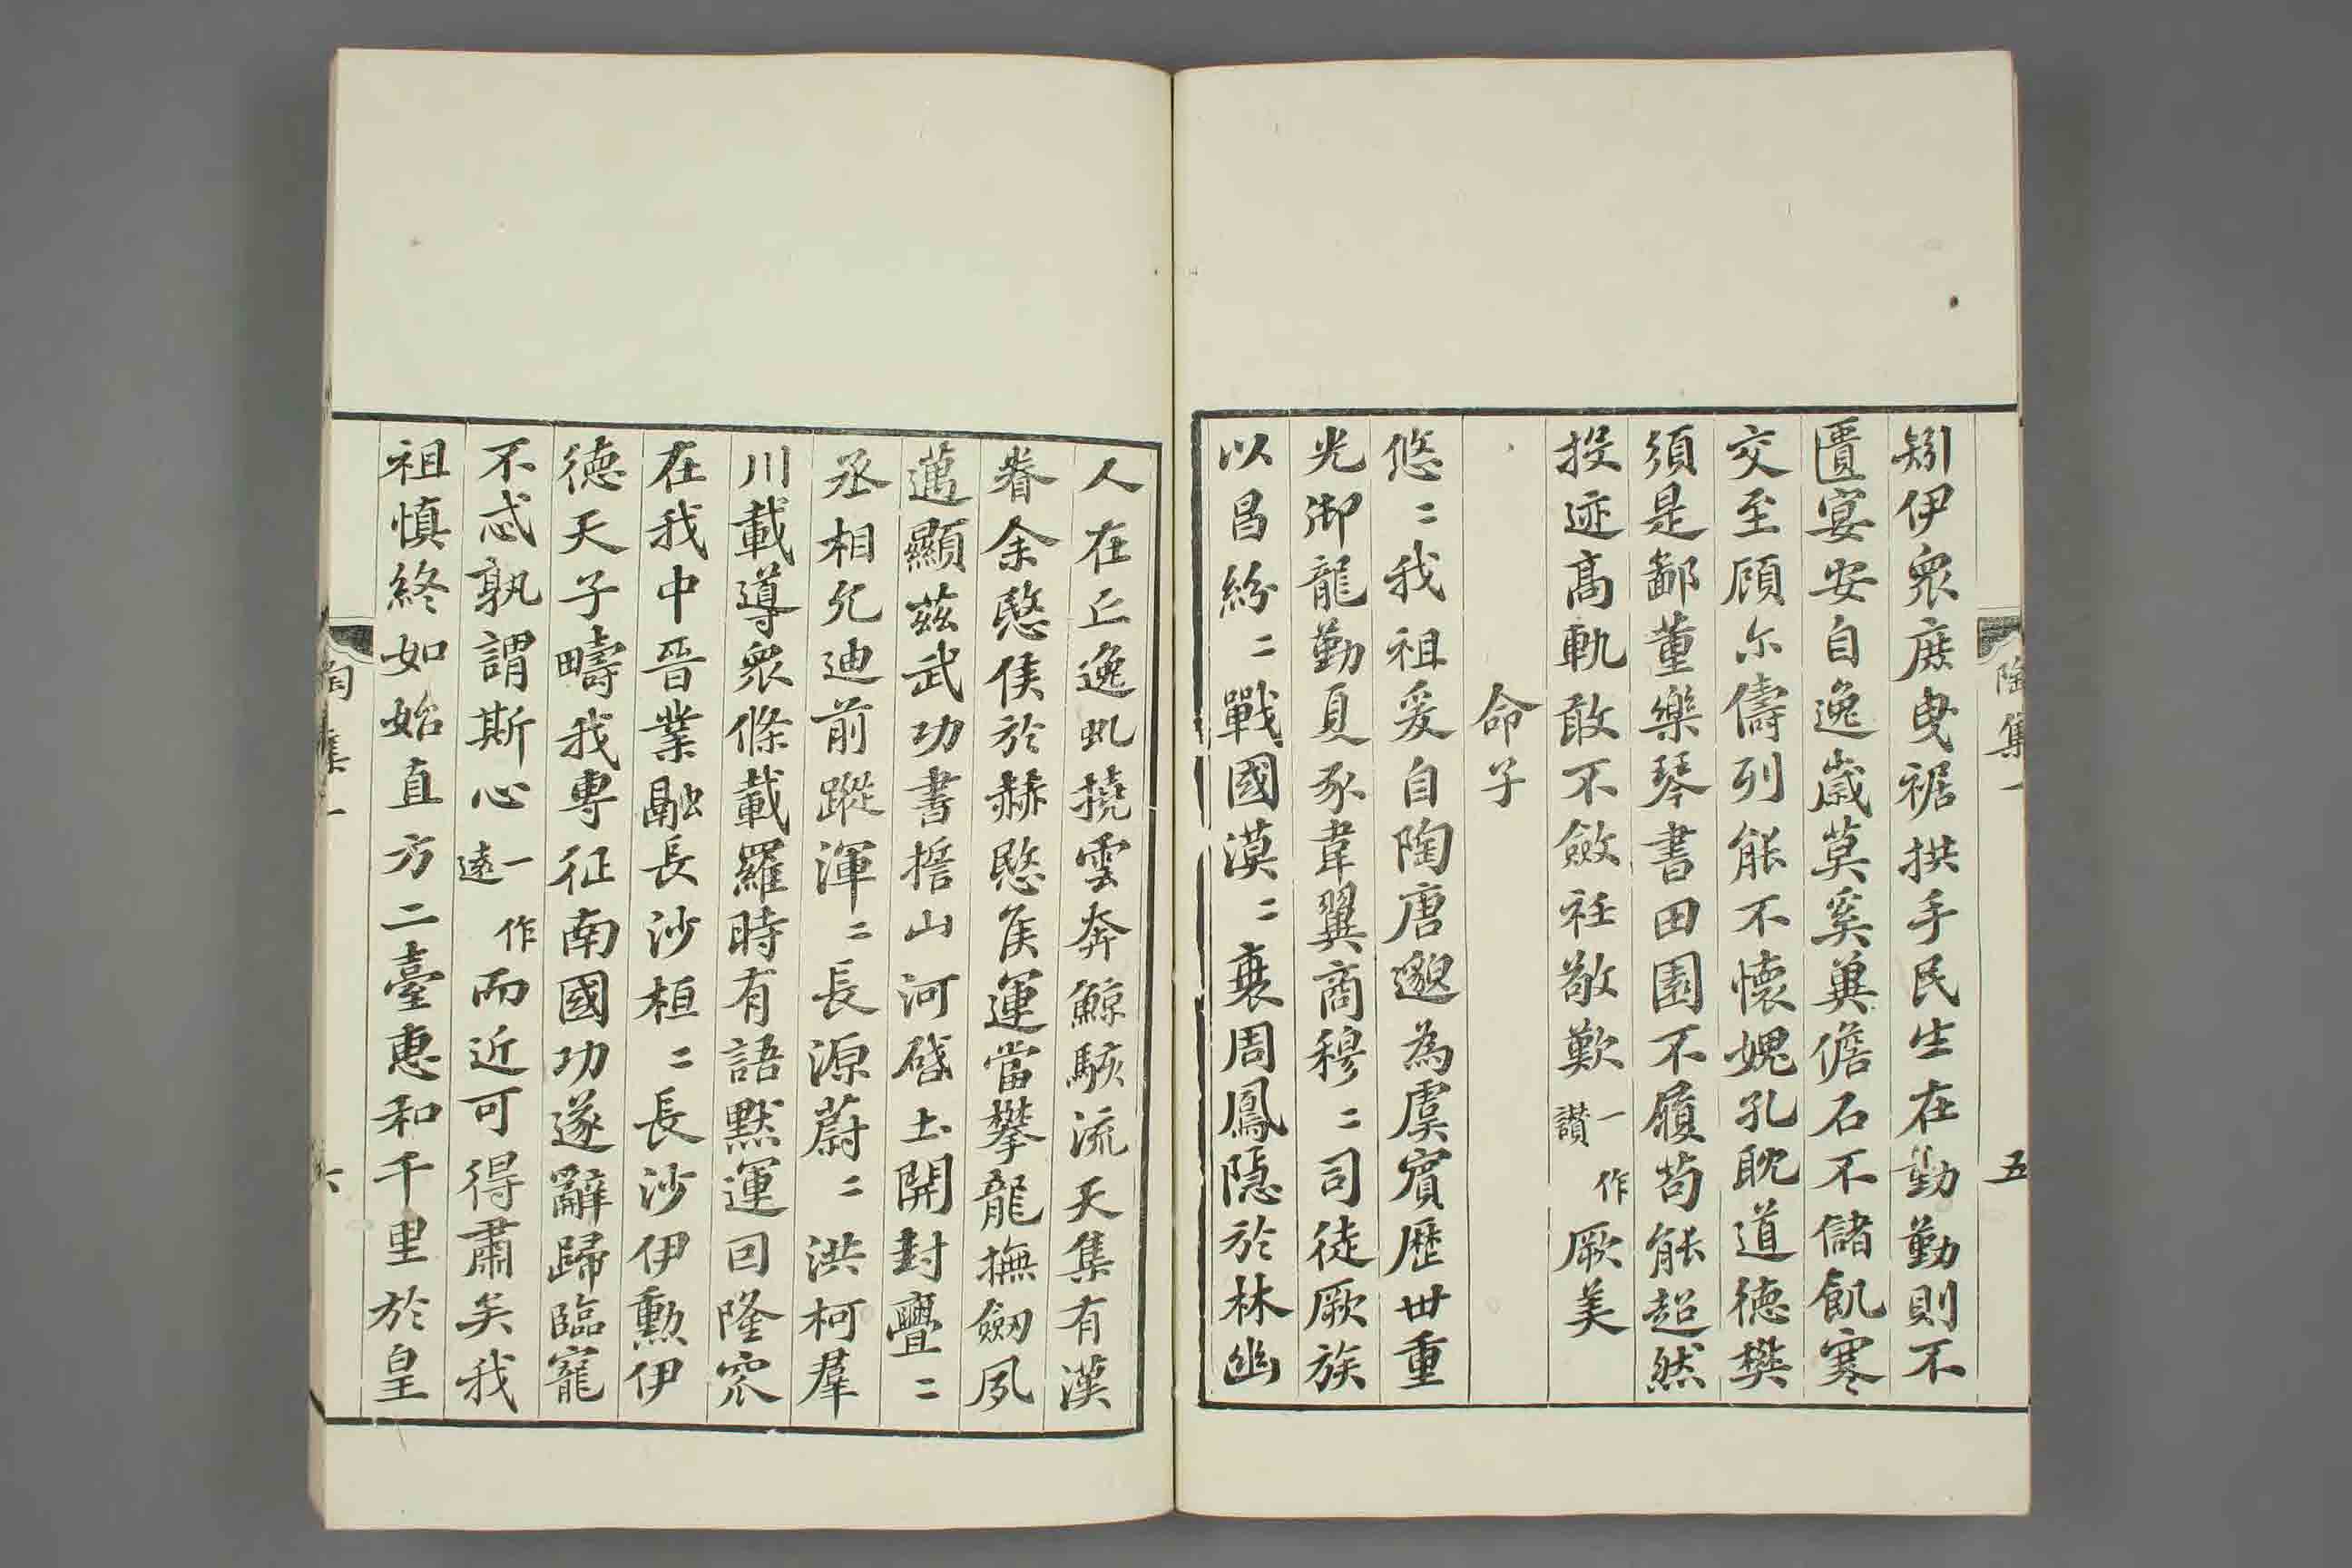 陶集一 五
矧伊衆庶曳裾拱手民生在勤勤則不
匱宴安自逸歲莫奚冀儋石不儲飢寒
交至顧尓儔列能不懷媿孔耽道德樊
須是鄙董樂琴書田園不履苟能超然
投迹高軌敢不斂衽敬歎一作讃厥美
命子
悠〻我祖爰自陶唐邈為虞賓歷世重
光御龍勤夏豕韋翼商穆〻司徒厥族
以昌紛〻戰國漠〻衰周鳳隱於林幽
人在丘逸虬撓雲奔鯨駭流天集有漢
眷余愍侯於赫愍侯運當攀龍撫劒夙
邁顯茲武功書誓山河啓土開封亹〻
丞相允迪前蹤渾〻長源蔚〻洪柯羣
川載導衆條載羅時有語默運囘隆窊
在我中晉業融長沙桓〻長沙伊勳伊
德天子疇我專征南國功遂辭歸臨寵
不忒孰謂斯心一作遠而近可得肅矣我
祖慎終如始直方二臺惠和千里於皇
陶集一 六